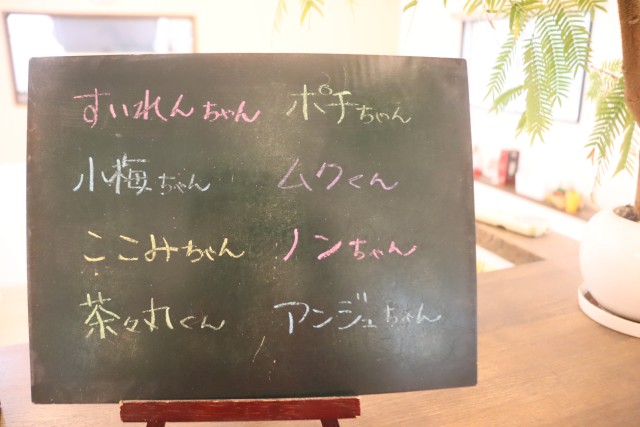 すいれんちゃん ポチちゃん
小梅ちゃん ムクくん
ここみちゃん ノンちゃん
茶々丸くん アンジュちゃん